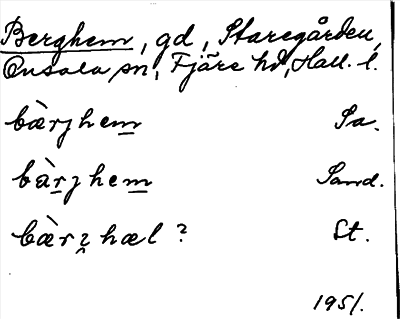 Berghem, gd, Staregården,
Onsala sn, Fjäre hd, Hall. l.
bærjhem Sa.
bàrjhem Sand.
bær hæl ? St.
1951.